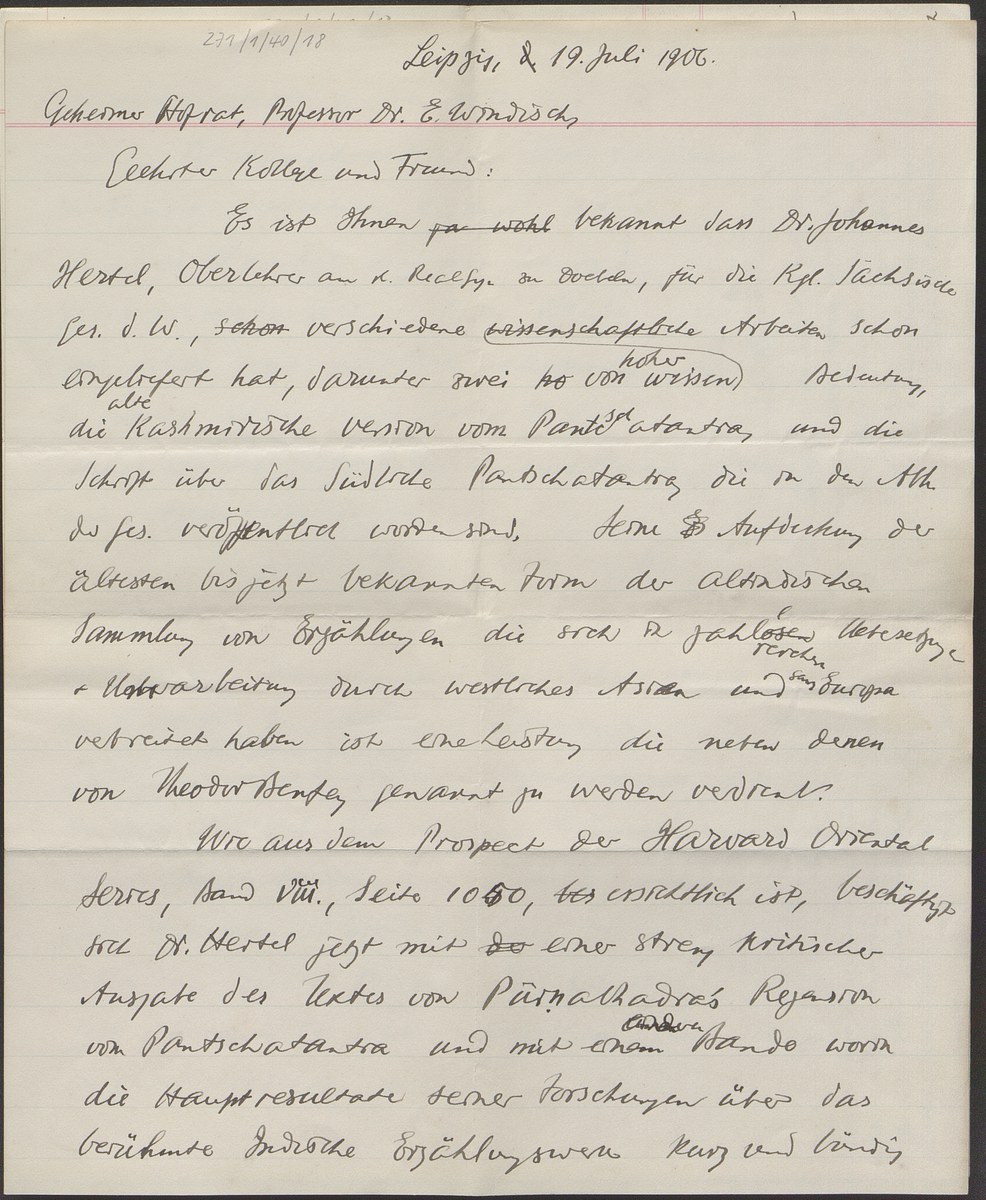 271/1/40/18
Leipzig, d. 19. Juli 1906.
Geheimer Hofrat, Professor Dr. E. Windisch,
Geehrter Kollege und Freund:
Es ist Ihnen ja wohl bekannt dass Dr. Johannes
Hertel, Oberlehrer am k. RealGyn zu Doebeln, für die Kgl. Sächsische
Ges. d. W., schon verschiedene wissenschaftliche Arbeiten schon
eingeliefert hat, darunter zwei ho von hoher wissen) Bedeutung,
die alte Kashmirische Version vom Pantschatantra, und die
Schrift über das Südliche Pantschatantra, die in den Abh.
der Ges. veröffentlich worden sind. Seine Aufdeckung der
ältesten bis jetzt bekannten Form der altindischen
Sammlung von Erzählungen die sich in zahllosen reichen Uebersetzungen
+ Umarbeitung durch westliches Asien und ganz Europa
verbreitet haben ist eine Leistung die neben denen
von Theodor Benfey genannt zu werden verdient.
Wie aus dem Prospect der Harvard Oriental
Series, Band VIII., Seite 1050, ersichtlich ist, beschäftigt
sich Dr. Hertel jetzt mit de einer streng kritischer
Ausgabe des Textes von Pūrṇabhadra's Rezension
vom Pantschatantra und mit einem andern Bande worin
die Hauptresultate seiner Forschungen über das
berühmte Indische Erzählungswerk kurz und bündig